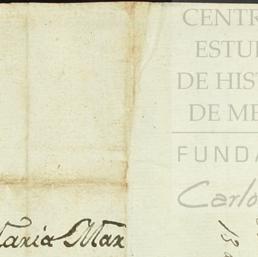 CENTR
ESTU
DE HIS
DE ME
FUNDA
Carlo
Maria Mar
13